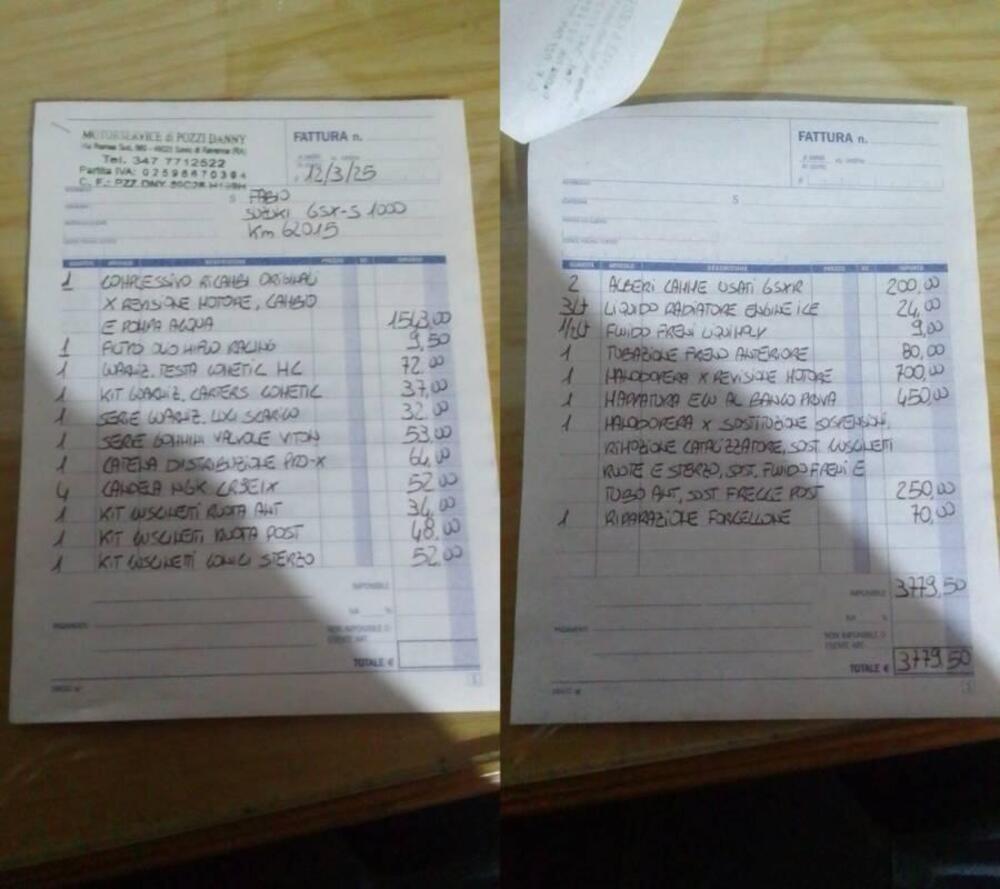 MOTORSERVICE di POZZI DANNY
Tel. 347 7712522
Partita IVA: 02598670394
FATTURA n.
12/3/25
S FABIO
SUZUKI GSX-S 1000
Km 62015
QUANTITÀ DESCRIZIONE PREZZO IMPORTO
1 COMPLESSIVO RICAMBI ORIGINALI
X REVISIONE MOTORE, CAMBIO
E POMPA ACQUA 1543,00
1 FILTRO OLIO HIFLO RACING 9,50
1 GUARNIZ. TESTA COMETIC HC 72,00
1 KIT GUARNIZ. CARTERS COMETIC 37,00
1 SERIE GUARNIZ. LUCI SCARICO 32,00
1 SERIE GOMMINI VALVOLE VITON 53,00
1 CATENA DISTRIBUZIONE PRO-X 64,00
4 CANDELA NGK CR9EIX 52,00
1 KIT CUSCINETTI RUOTA ANT 34,00
1 KIT CUSCINETTI RUOTA POST 48,00
1 KIT CUSCINETTI CONICI STERZO 52,00
IMPONIBILE
IVA %
NON IMPONIBILE O
ESENTE ART.
TOTALE €
1
FATTURA n.
S
QUANTITÀ DESCRIZIONE PREZZO IMPORTO
2 ALBERI CAMME USATI GSXR 200,00
3Lt LIQUIDO RADIATORE ENGINE ICE 24,00
1/2Lt FLUIDO FRENI LIQUIMOLY 9,00
1 TUBAZIONE FRENO ANTERIORE 80,00
1 MANODOPERA X REVISIONE MOTORE 700,00
1 MAPPATURA ECU AL BANCO PROVA 450,00
1 MANODOPERA X SOSTITUZIONE SOSPENSIONI,
RIMOZIONE CATALIZZATORE, SOST. CUSCINETTI
RUOTE E STERZO, SOST. FLUIDO FRENI E
TUBO ANT, SOST FRECCE POST 250,00
1 RIPARAZIONE FORCELLONE 70,00
IMPONIBILE 3779,50
IVA %
NON IMPONIBILE O
ESENTE ART.
TOTALE € 3779,50